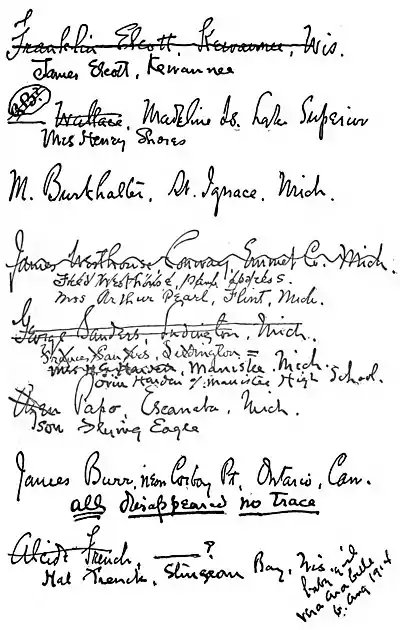 Franklin Elcott, Kewaunee, Wis.
James Elcott, Kewaunee
Wallace, Madeline Is. Lake Superior
Mrs Henry Shores
M. Burkhalter, St. Ignace, Mich.
James Westhouse Conway, Emmet Co. Mich.
Fred Westhouse, same address.
Mrs Arthur Pearl, Flint, Mich.
George Sanders, Ludington, Mich.
Frances Sanders, Ludington =
Manistee, Mich.
Harden of Manistee High School.
Papo, Escanaba, Mich.
son Flying Eagle
James Burr, near Corbay Pt, Ontario, Can.
all disappeared no trace
Alcide French, ?
Hal French, Sturgeon Bay, Wis.
baby girl
6 Aug 1914